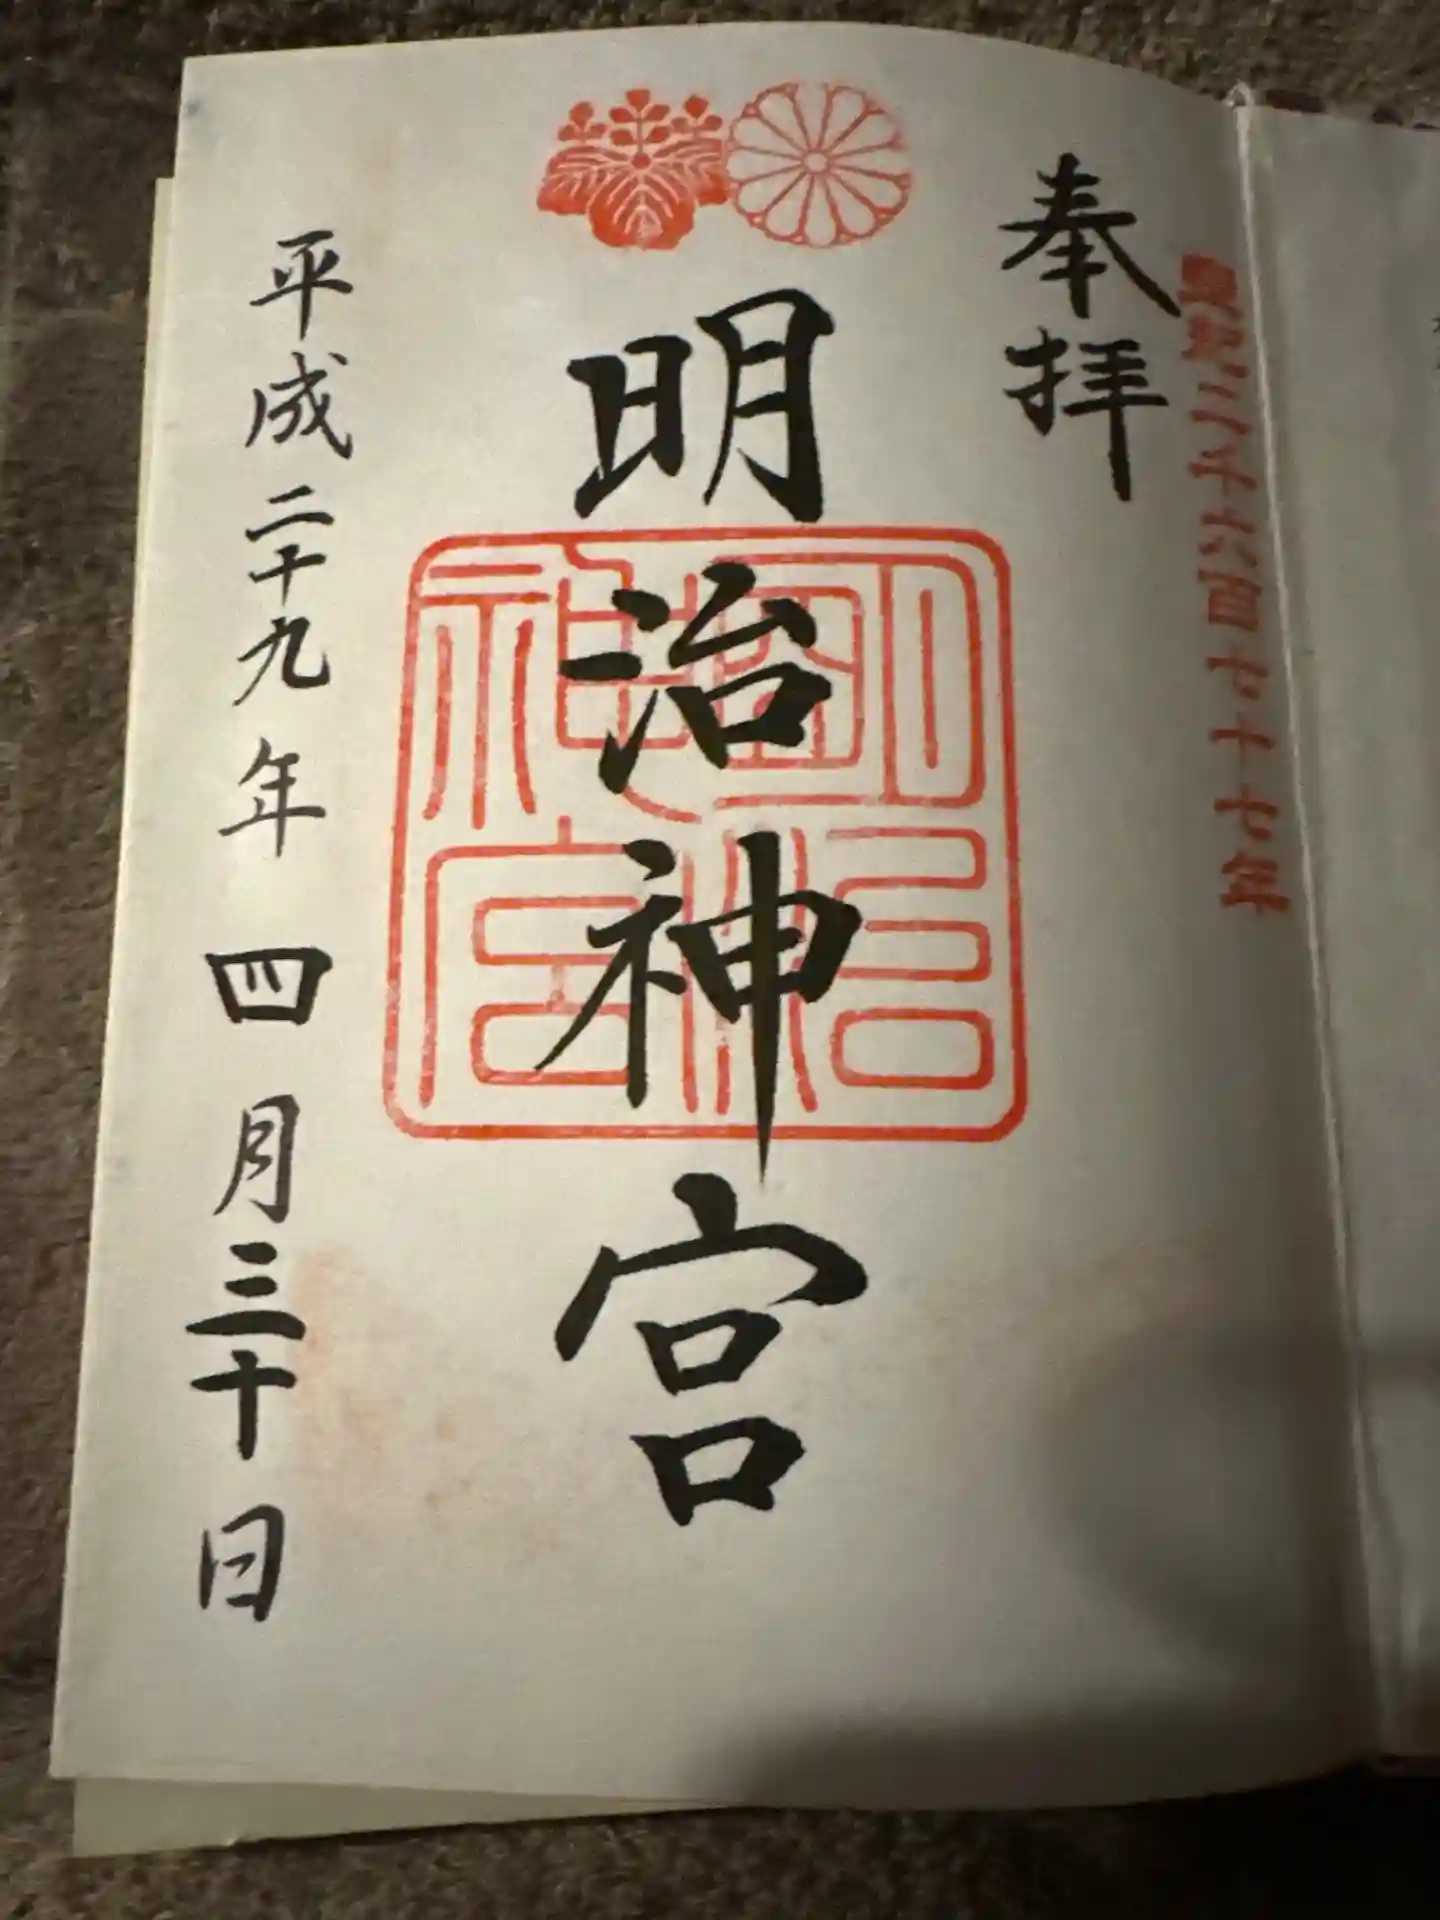 皇紀二千六百七十七年
奉拝
明治神宮
明治神宮
平成二十九年四月三十日